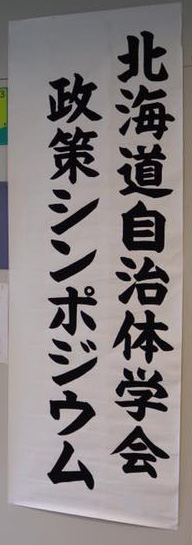 北海道自治体学会
政策シンポジウム